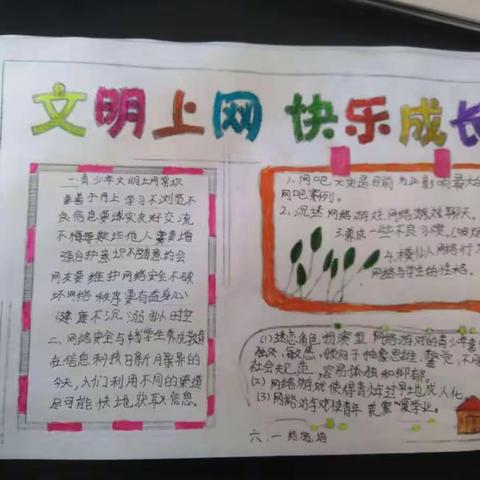 文明上网 快乐成长
一.青少年文明上网常识
要善于网上学习不浏览不
良信息要诚实友好交流
不侮辱欺诈他人要增
强自护意识不随意约会
网友要维护网络安全不破
坏网络秩序要有益身心
健康不沉溺虚拟时空
二、网络安全与中学生养成教育
在信息科技日新月异的
今天,人们利用不同的渠道
尽可能快地获取信息。
1、网吧大火是目前为止影响最大的
网吧案例。
2、沉迷网络游戏、网络游戏聊天。
3.养成一些不良习惯。
4、模仿人网络行为
网络与学生的性格。
(1)迷恋角色扮演型网络游戏的青少年
孤独、敏感、倾向于抽象思维、警觉,不
社会规范,容易体验和抑郁。
(2)网络游戏使得青少年过早地成人化。
(3)网络游戏使青年荒废学业。
六、一